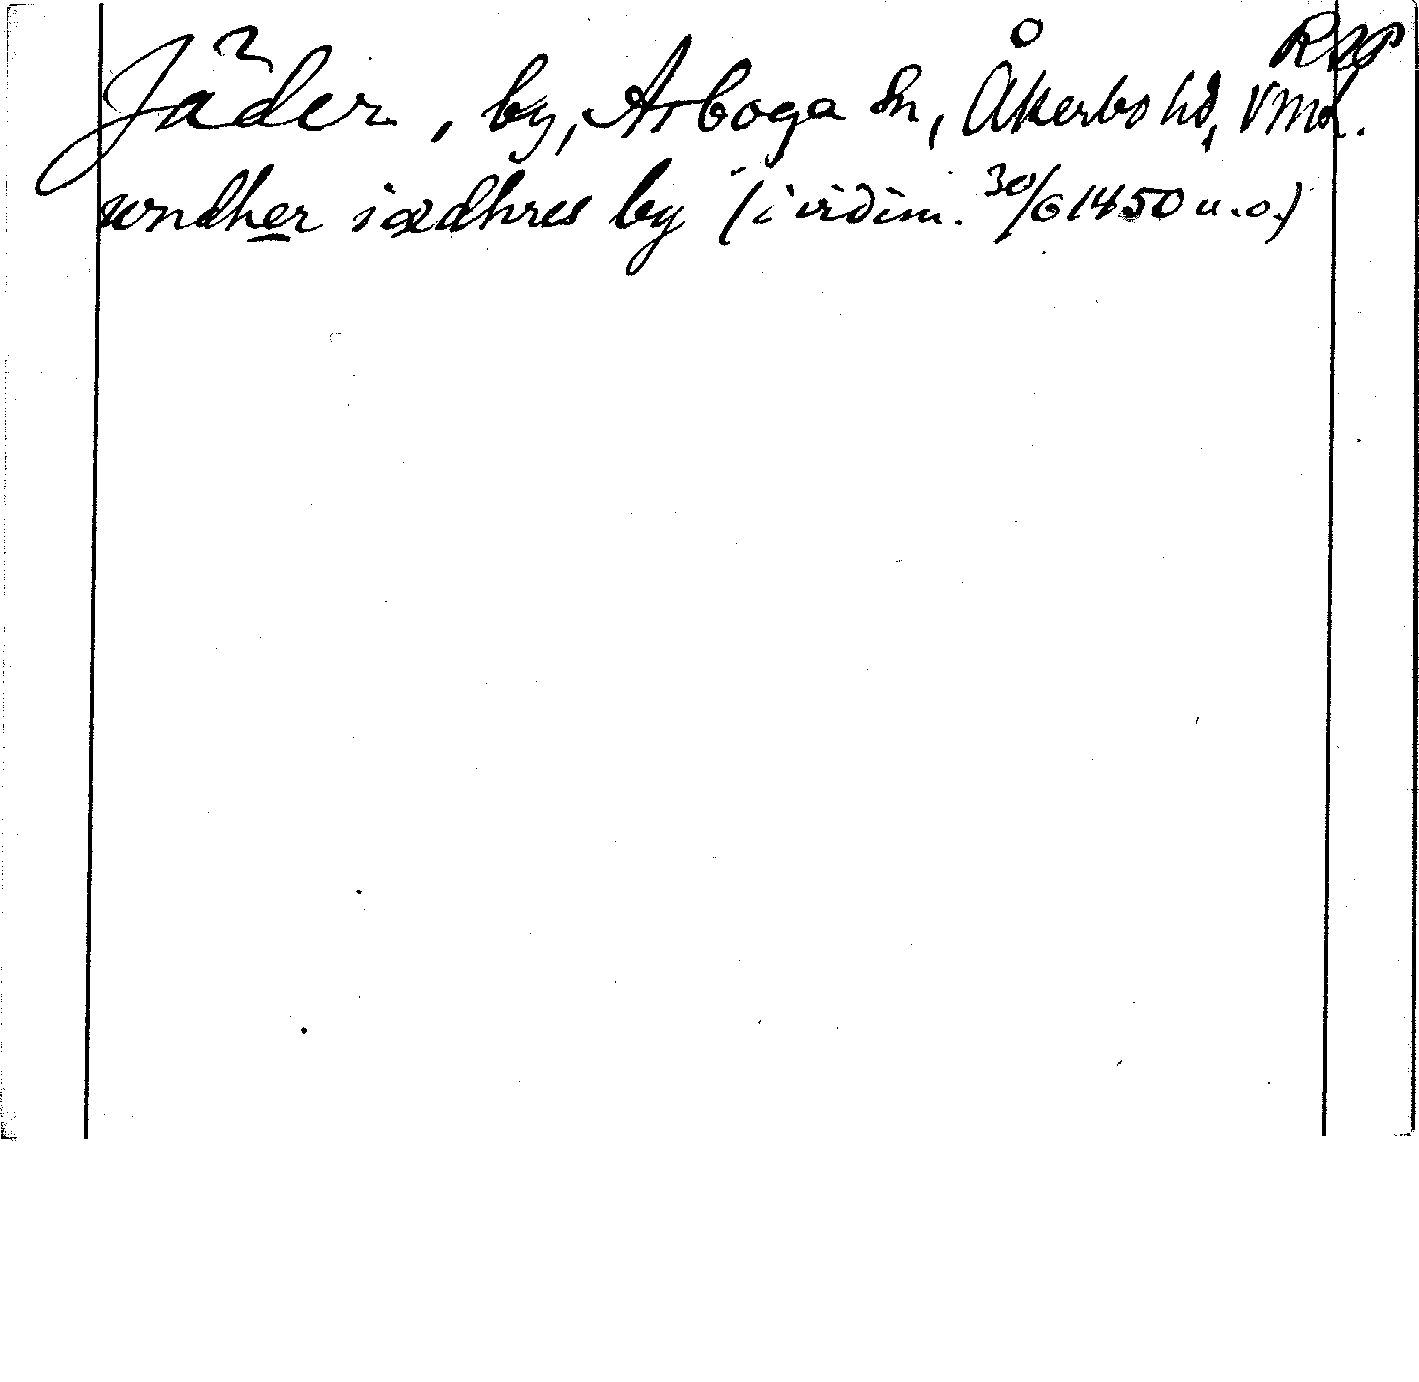 RAP
Jäder, by, Arboga sn, Åkerbo hd, Vml.
wndher iædhres by (i vidim. 30/6 1450 u.o.)